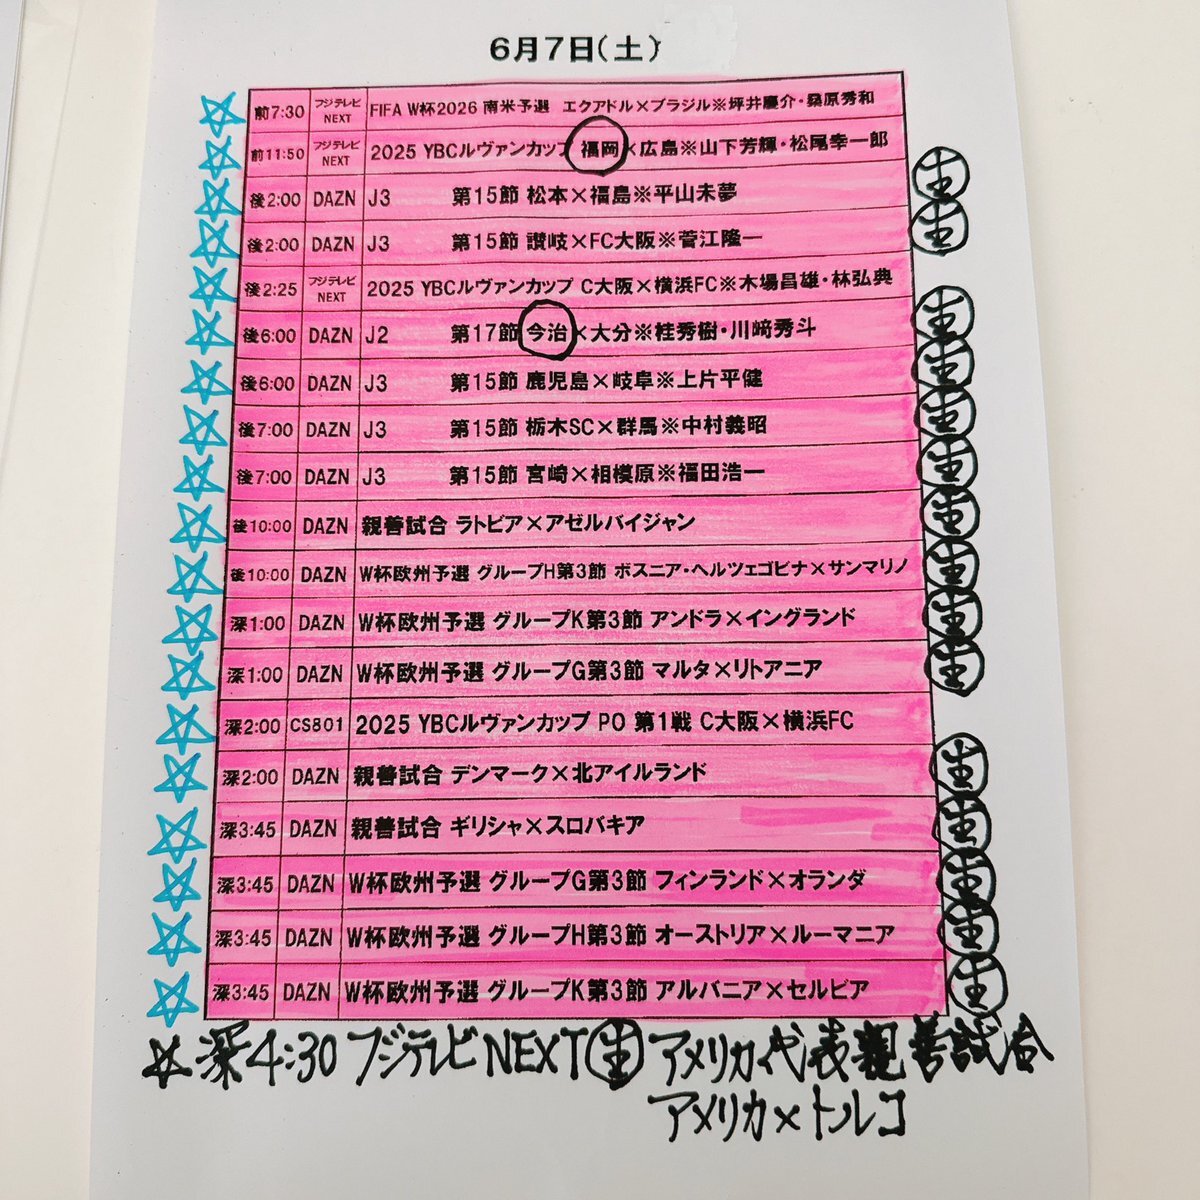 6月7日(土)
前7:30 フジテレビNEXT FIFA W杯2026 南米予選 エクアドル×ブラジル※坪井慶介・桑原秀和
前11:50 フジテレビNEXT 2025 YBCルヴァンカップ 福岡×広島※山下芳輝・松尾幸一郎
後2:00 DAZN J3 第15節 松本×福島※平山未夢 生
後2:00 DAZN J3 第15節 讃岐×FC大阪※菅江隆一 生
後2:25 フジテレビNEXT 2025 YBCルヴァンカップ C大阪×横浜FC※木場昌雄・林弘典
後6:00 DAZN J2 第17節 今治×大分※桂秀樹・川﨑秀斗 生
後6:00 DAZN J3 第15節 鹿児島×岐阜※上片平健 生
後7:00 DAZN J3 第15節 栃木SC×群馬※中村義昭 生
後7:00 DAZN J3 第15節 宮崎×相模原※福田浩一 生
後10:00 DAZN 親善試合 ラトビア×アゼルバイジャン 生
後10:00 DAZN W杯欧州予選 グループH第3節 ボスニア・ヘルツェゴビナ×サンマリノ 生
深1:00 DAZN W杯欧州予選 グループK第3節 アンドラ×イングランド 生
深1:00 DAZN W杯欧州予選 グループG第3節 マルタ×リトアニア 生
深2:00 CS801 2025 YBCルヴァンカップ PO 第1戦 C大阪×横浜FC
深2:00 DAZN 親善試合 デンマーク×北アイルランド 生
深3:45 DAZN 親善試合 ギリシャ×スロバキア 生
深3:45 DAZN W杯欧州予選 グループG第3節 フィンランド×オランダ 生
深3:45 DAZN W杯欧州予選 グループH第3節 オーストリア×ルーマニア 生
深3:45 DAZN W杯欧州予選 グループK第3節 アルバニア×セルビア 生
☆深4:30 フジテレビNEXT 生 アメリカ代表親善試合
アメリカ×トルコ